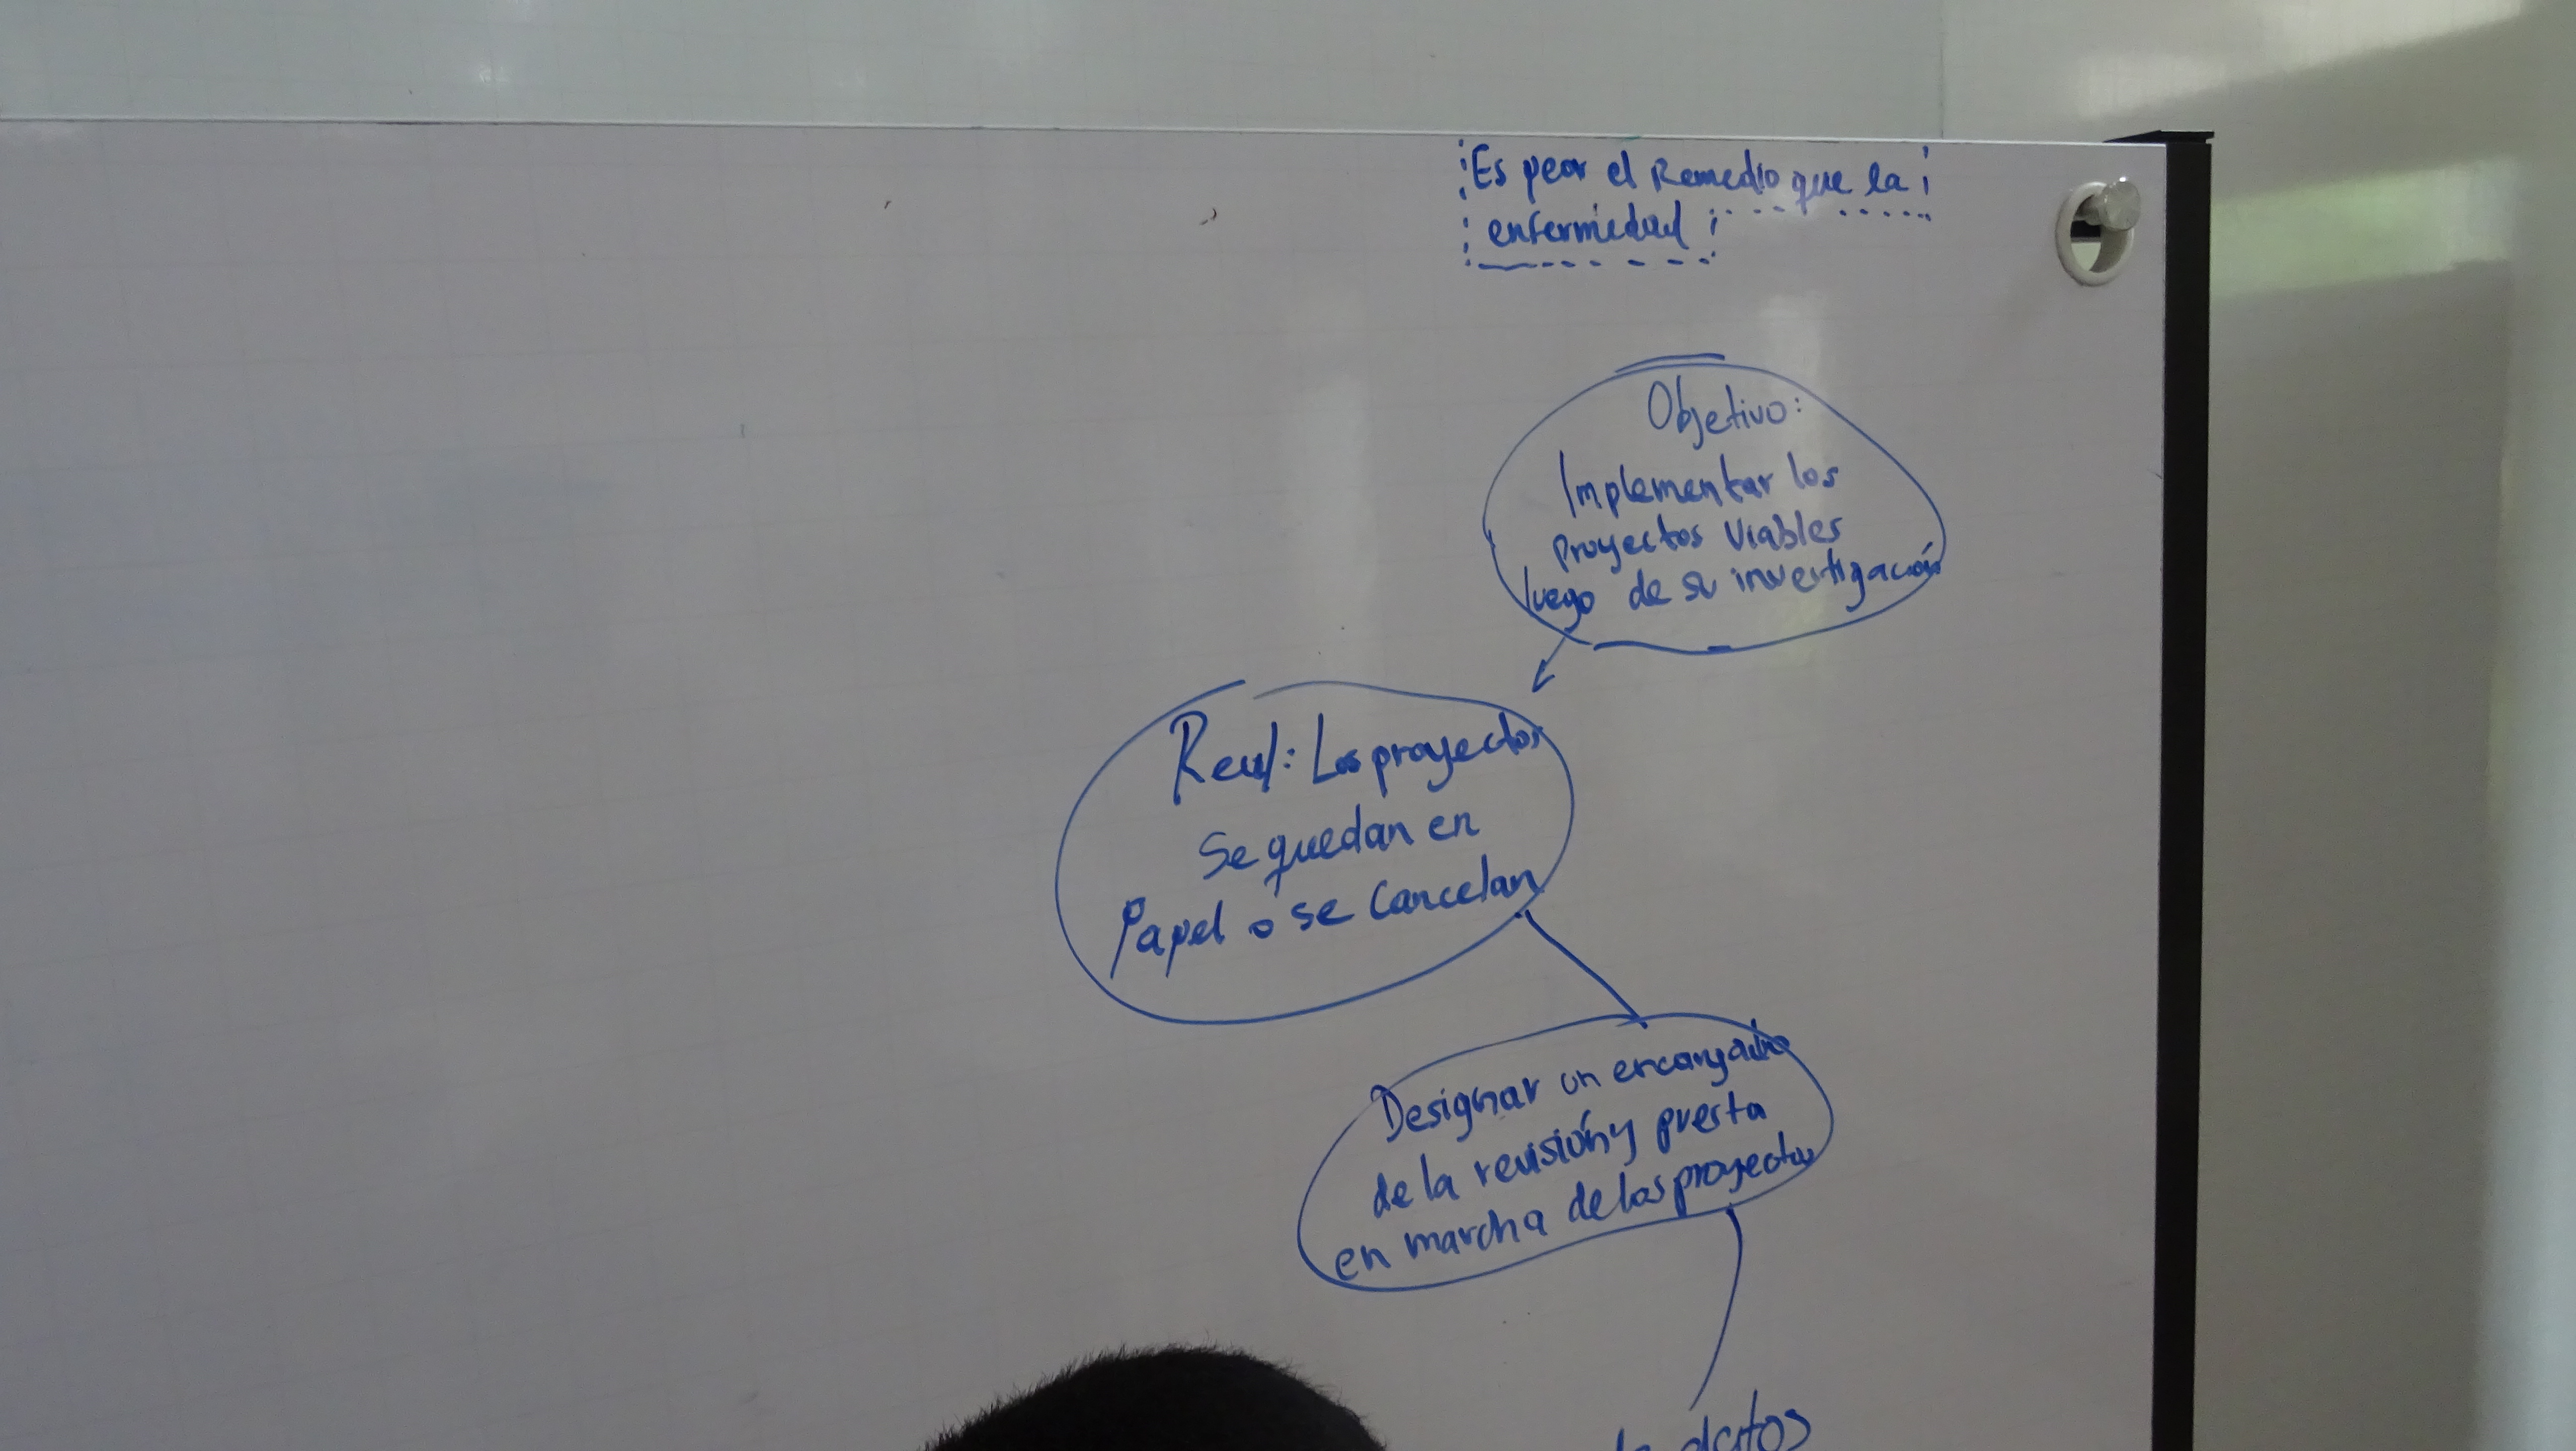 Es peor el Remedio que la
enfermedad
Objetivo:
Implementar los
proyectos viables
luego de su investigación
Real: Los proyectos
Se quedan en
Papel o se Cancelan
Designar un encargado
de la revisión y puesta
en marcha de los proyectos
datos